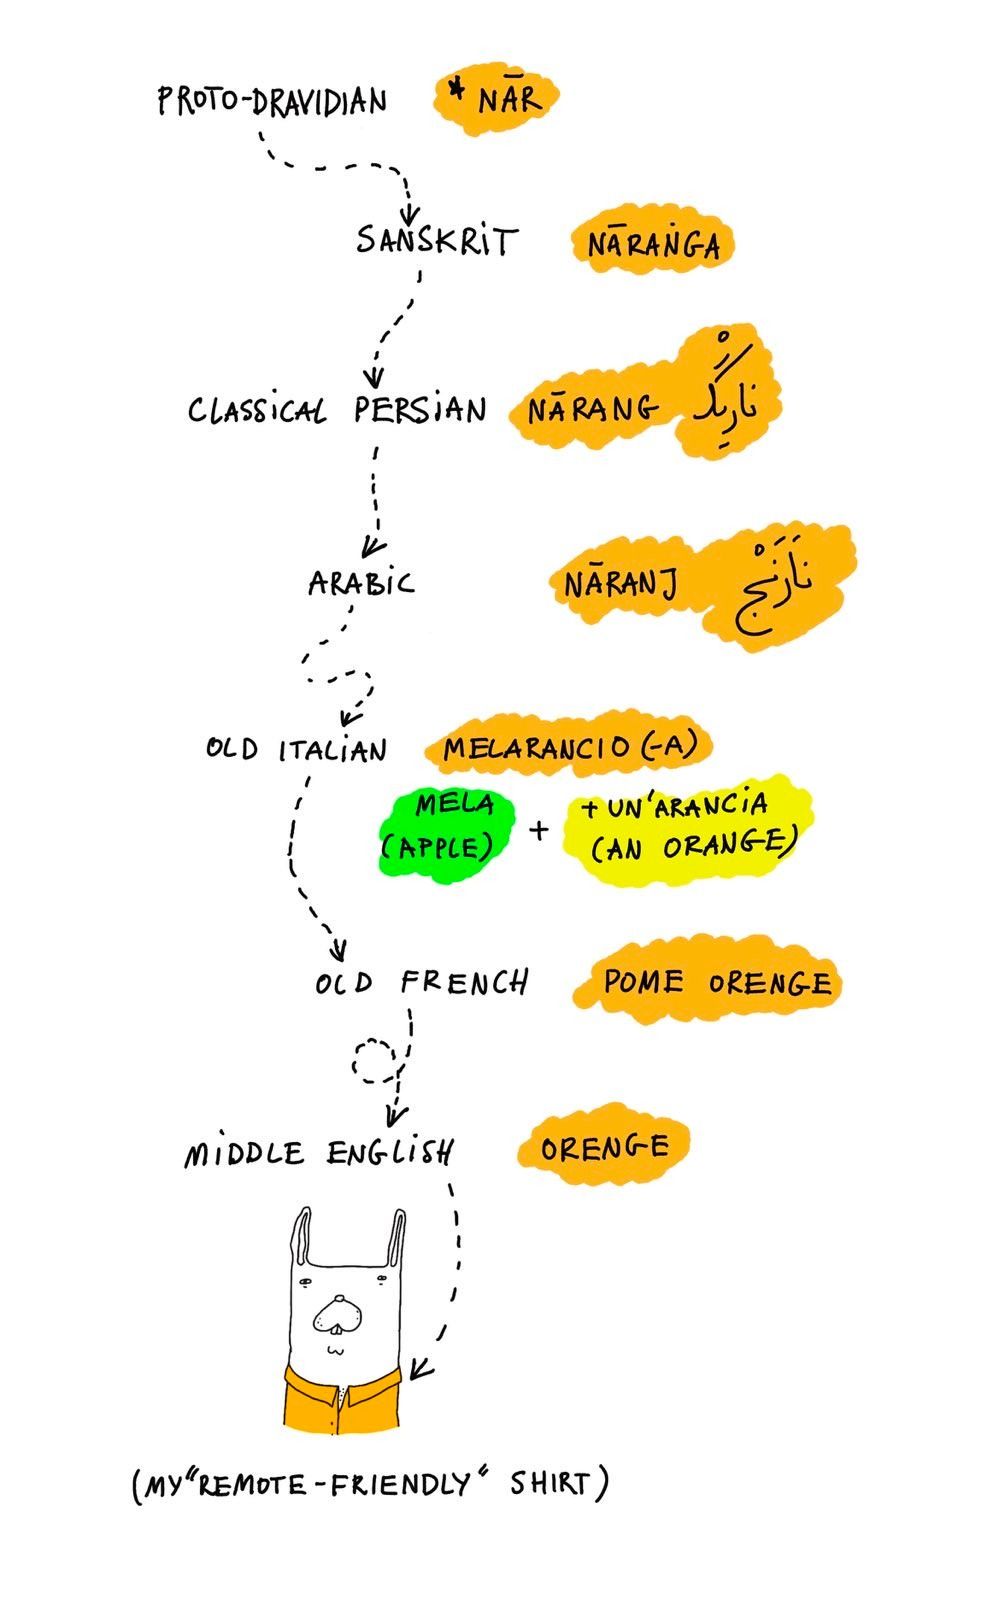 PROTO-DRAVIDIAN * NĀR
SANSKRiT NĀRAṄGA
CLASSiCAL PERSiAN NĀRANG نارِنگْ
ARABiC NĀRANJ نَارَنْج
OLD ITALiAN MELARANCIO (-A)
MELA + + UN'ARANCiA
(APPLE) (AN ORANGE)
OLD FRENCH POME ORENGE
MiDDLE ENGLiSH ORENGE
(MY "REMOTE-FRIENDLY" SHIRT)